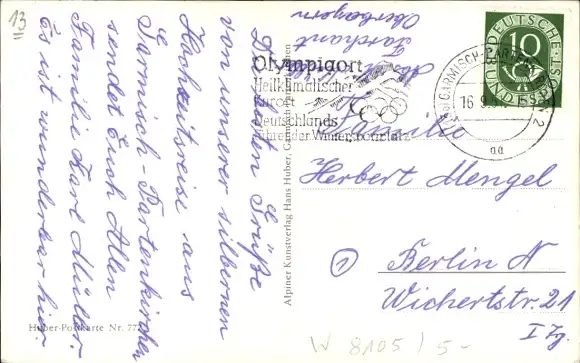 13
Die besten Grüße
von unserer silbernen
Hochzeitsreise aus
Garmisch-Partenkirchen
sendet Euch Allen
Familie Karl Müller.
Es ist wunderbar hier.
Huber-Postkarte Nr. 77
Alpiner Kunstverlag Hans Huber, Garmisch-Partenkirchen
Farchant
Oberbayern
Olympiaort
Heilklimatischer
Kurort
Deutschlands
führender Wintersportplatz
GARMISCH-PARTENK
16.9.5
2
DEUTSCHE
BUNDESPOST
10
Familie
Herbert Mengel
Berlin N
Wichertstr. 21
I Zg.
W 8105/5-